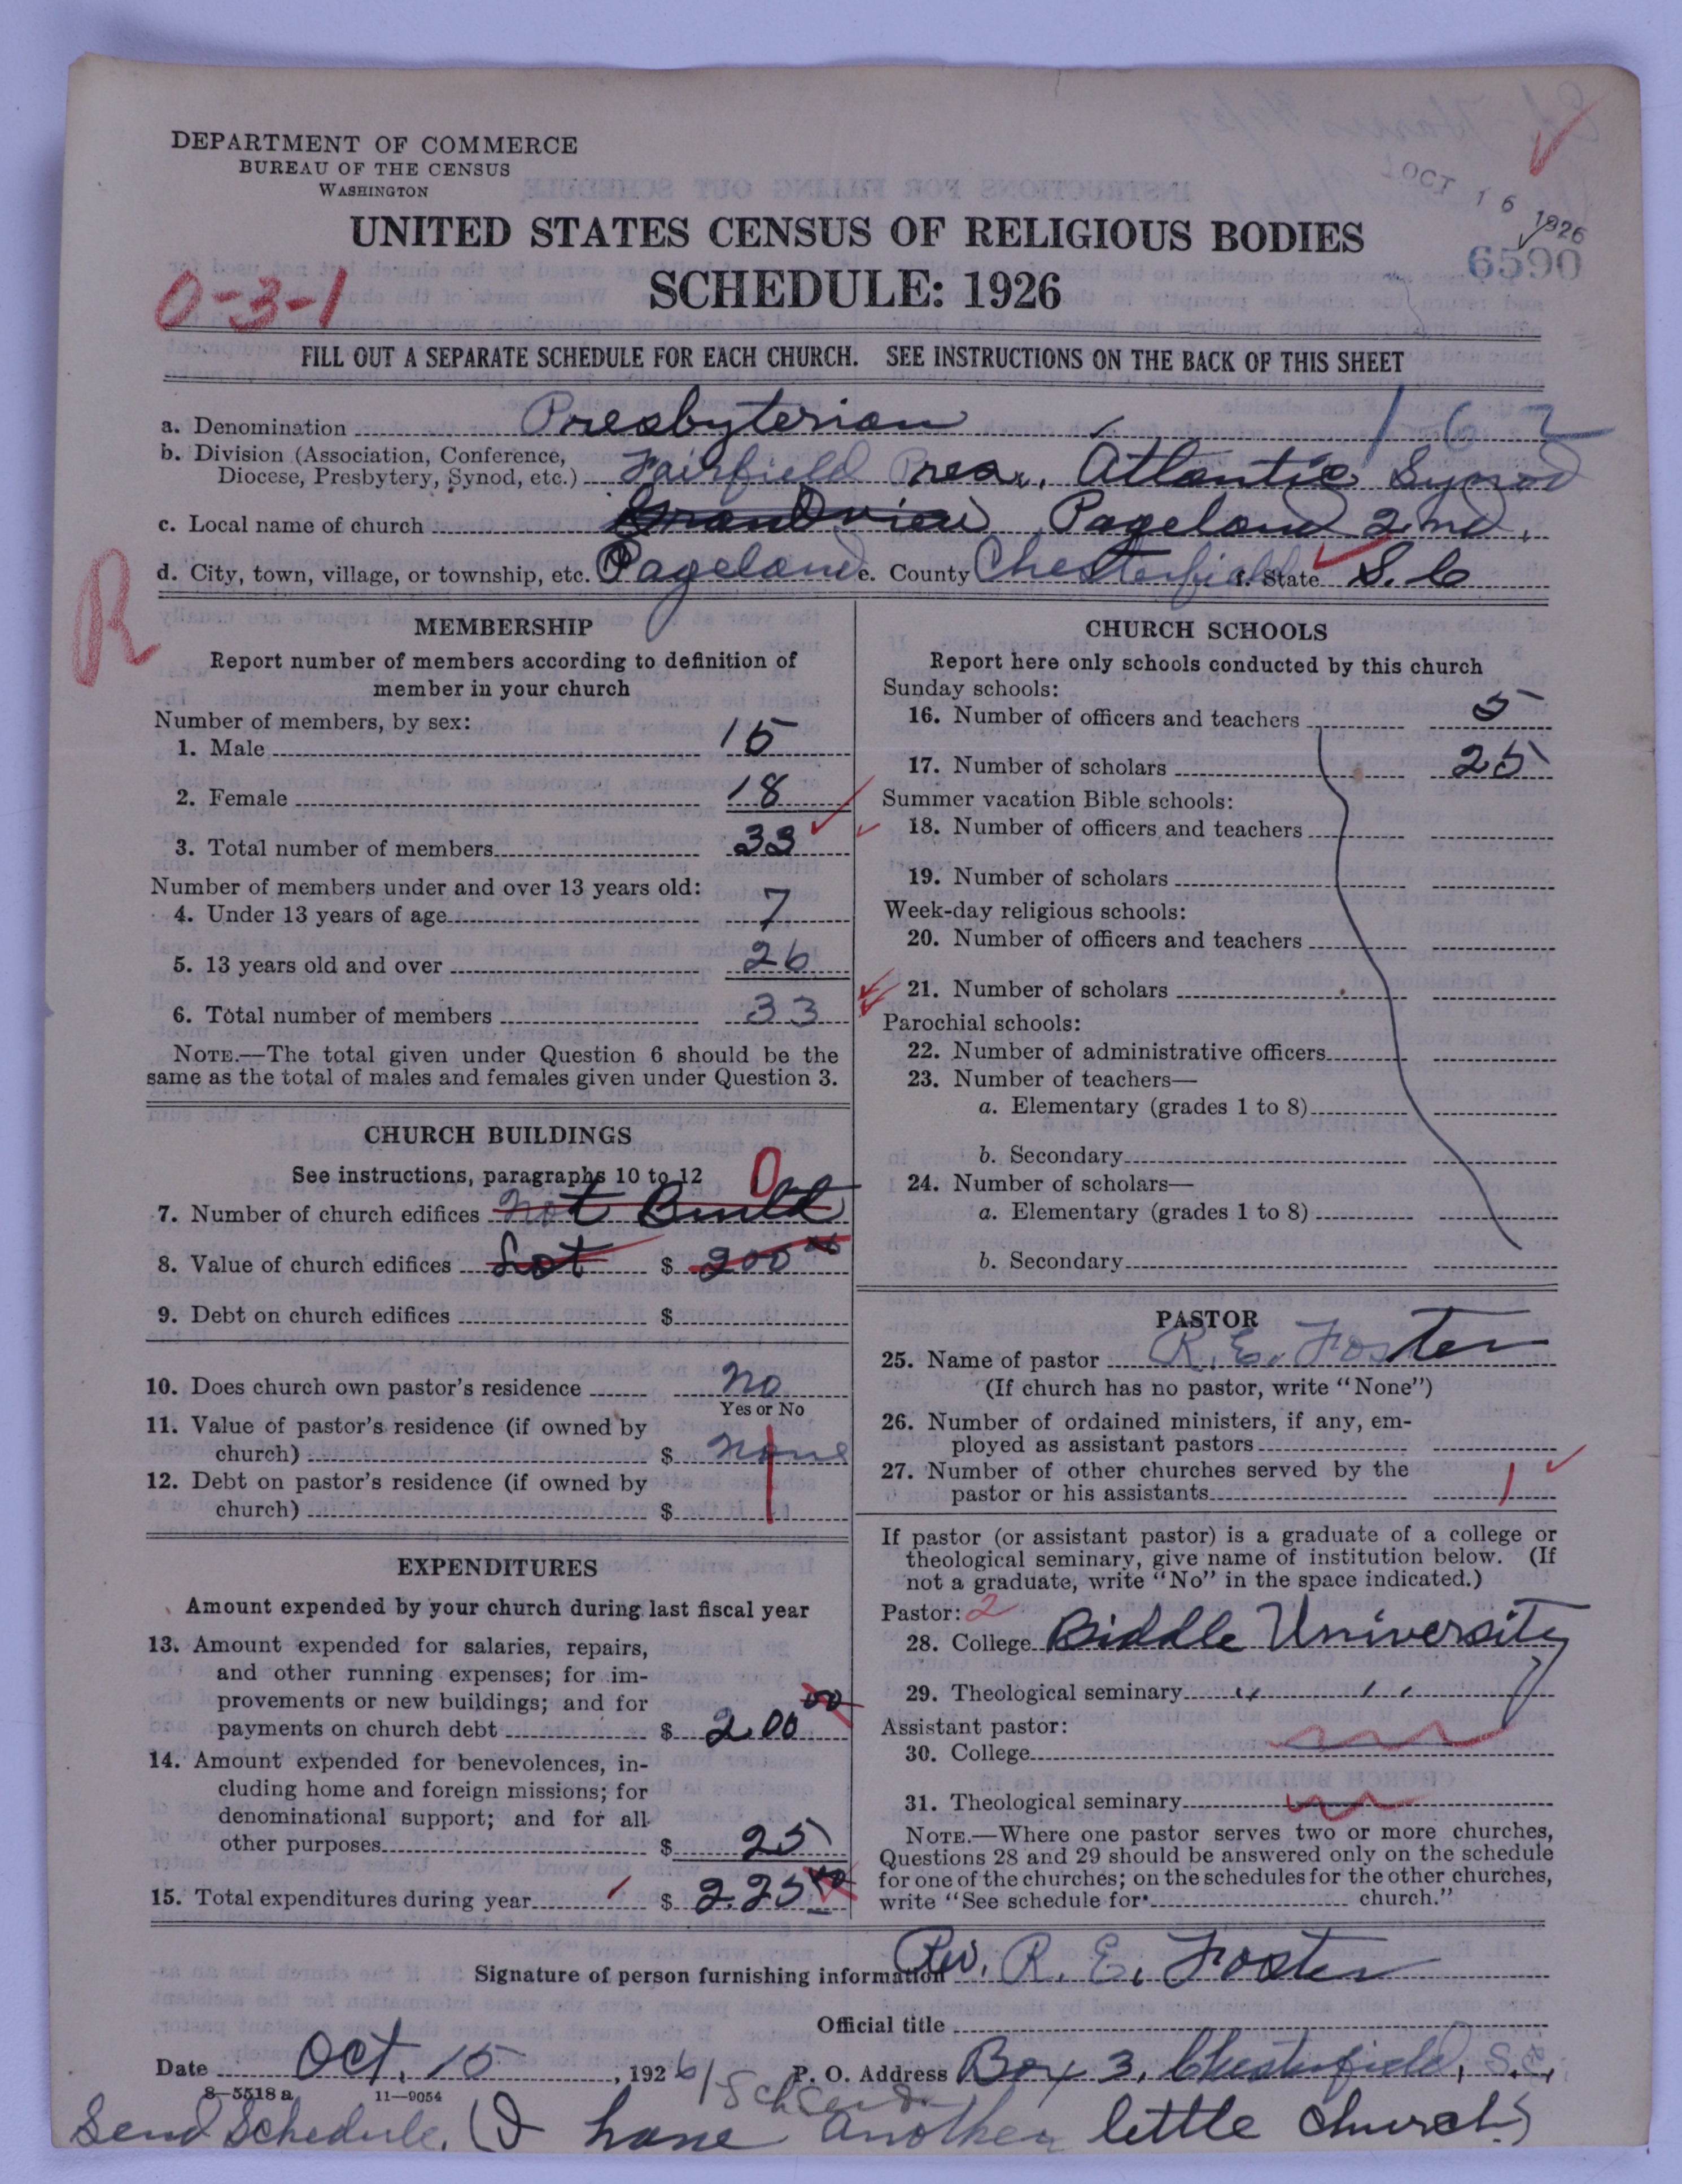 DEPARTMENT OF COMMERCE
BUREAU OF THE CENSUS
WASHINGTON
OCT 16 1926
UNITED STATES CENSUS OF RELIGIOUS BODIES
6590
SCHEDULE: 1926
0-3-1
FILL OUT A SEPARATE SCHEDULE FOR EACH CHURCH. SEE INSTRUCTIONS ON THE BACK OF THIS SHEET
162
a. Denomination Presbyterian
b. Division (Association, Conference,
Diocese, Presbytery, Synod, etc.) Fairfield Pres., Atlantic Synod
c. Local name of church Grandview Pageland 2nd.
d. City, town, village, or township, etc. Pageland e. County Chesterfield f. State S. C
R
MEMBERSHIP
Report number of members according to definition of
member in your church
Number of members, by sex:
1. Male 15
2. Female 18
3. Total number of members 33
Number of members under and over 13 years old:
4. Under 13 years of age 7
5. 13 years old and over 26
6. Total number of members 33
NOTE.—The total given under Question 6 should be the
same as the total of males and females given under Question 3.
CHURCH BUILDINGS
See instructions, paragraphs 10 to 12
0
7. Number of church edifices not Built
8. Value of church edifices Lot $ 200 00
9. Debt on church edifices $
10. Does church own pastor's residence no
Yes or No
11. Value of pastor's residence (if owned by
church) $ none
12. Debt on pastor's residence (if owned by
church) $
EXPENDITURES
Amount expended by your church during last fiscal year
13. Amount expended for salaries, repairs,
and other running expenses; for im-
provements or new buildings; and for
payments on church debt $ 200 00
14. Amount expended for benevolences, in-
cluding home and foreign missions; for
denominational support; and for all
other purposes $ 25
15. Total expenditures during year $ 225 00
CHURCH SCHOOLS
Report here only schools conducted by this church
Sunday schools:
16. Number of officers and teachers 5
17. Number of scholars 25
Summer vacation Bible schools:
18. Number of officers and teachers
19. Number of scholars
Week-day religious schools:
20. Number of officers and teachers
21. Number of scholars
Parochial schools:
22. Number of administrative officers
23. Number of teachers—
a. Elementary (grades 1 to 8)
b. Secondary
24. Number of scholars—
a. Elementary (grades 1 to 8)
b. Secondary
PASTOR
25. Name of pastor R. E. Foster
(If church has no pastor, write "None")
26. Number of ordained ministers, if any, em-
ployed as assistant pastors
27. Number of other churches served by the
pastor or his assistants 1
If pastor (or assistant pastor) is a graduate of a college or
theological seminary, give name of institution below. (If
not a graduate, write "No" in the space indicated.)
Pastor: 2
28. College Biddle University
29. Theological seminary " "
Assistant pastor:
30. College
31. Theological seminary
NOTE.—Where one pastor serves two or more churches,
Questions 28 and 29 should be answered only on the schedule
for one of the churches; on the schedules for the other churches,
write "See schedule for church."
Signature of person furnishing information Rev. R. E. Foster
Official title
Date Oct, 15, 1926 P. O. Address Box 3, Chesterfield, S.C.,
8—5518 a 11—9054
Send Schedule. (I have another little church)